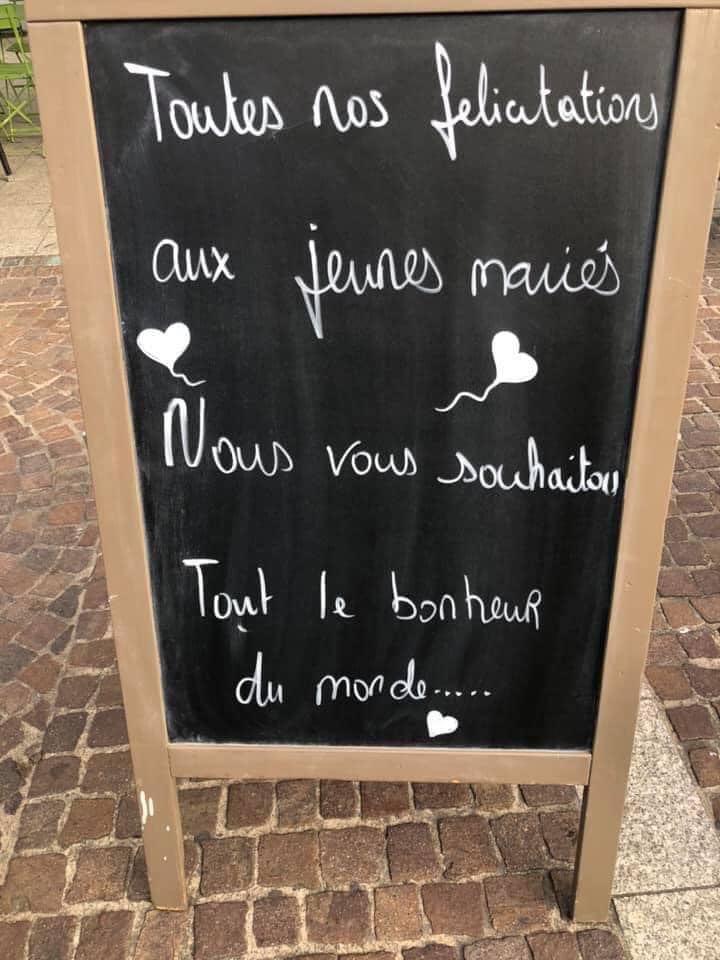 Toutes nos felicitations
aux jeunes mariés
Nous vous souhaitons
Tout le bonheur
du monde.....